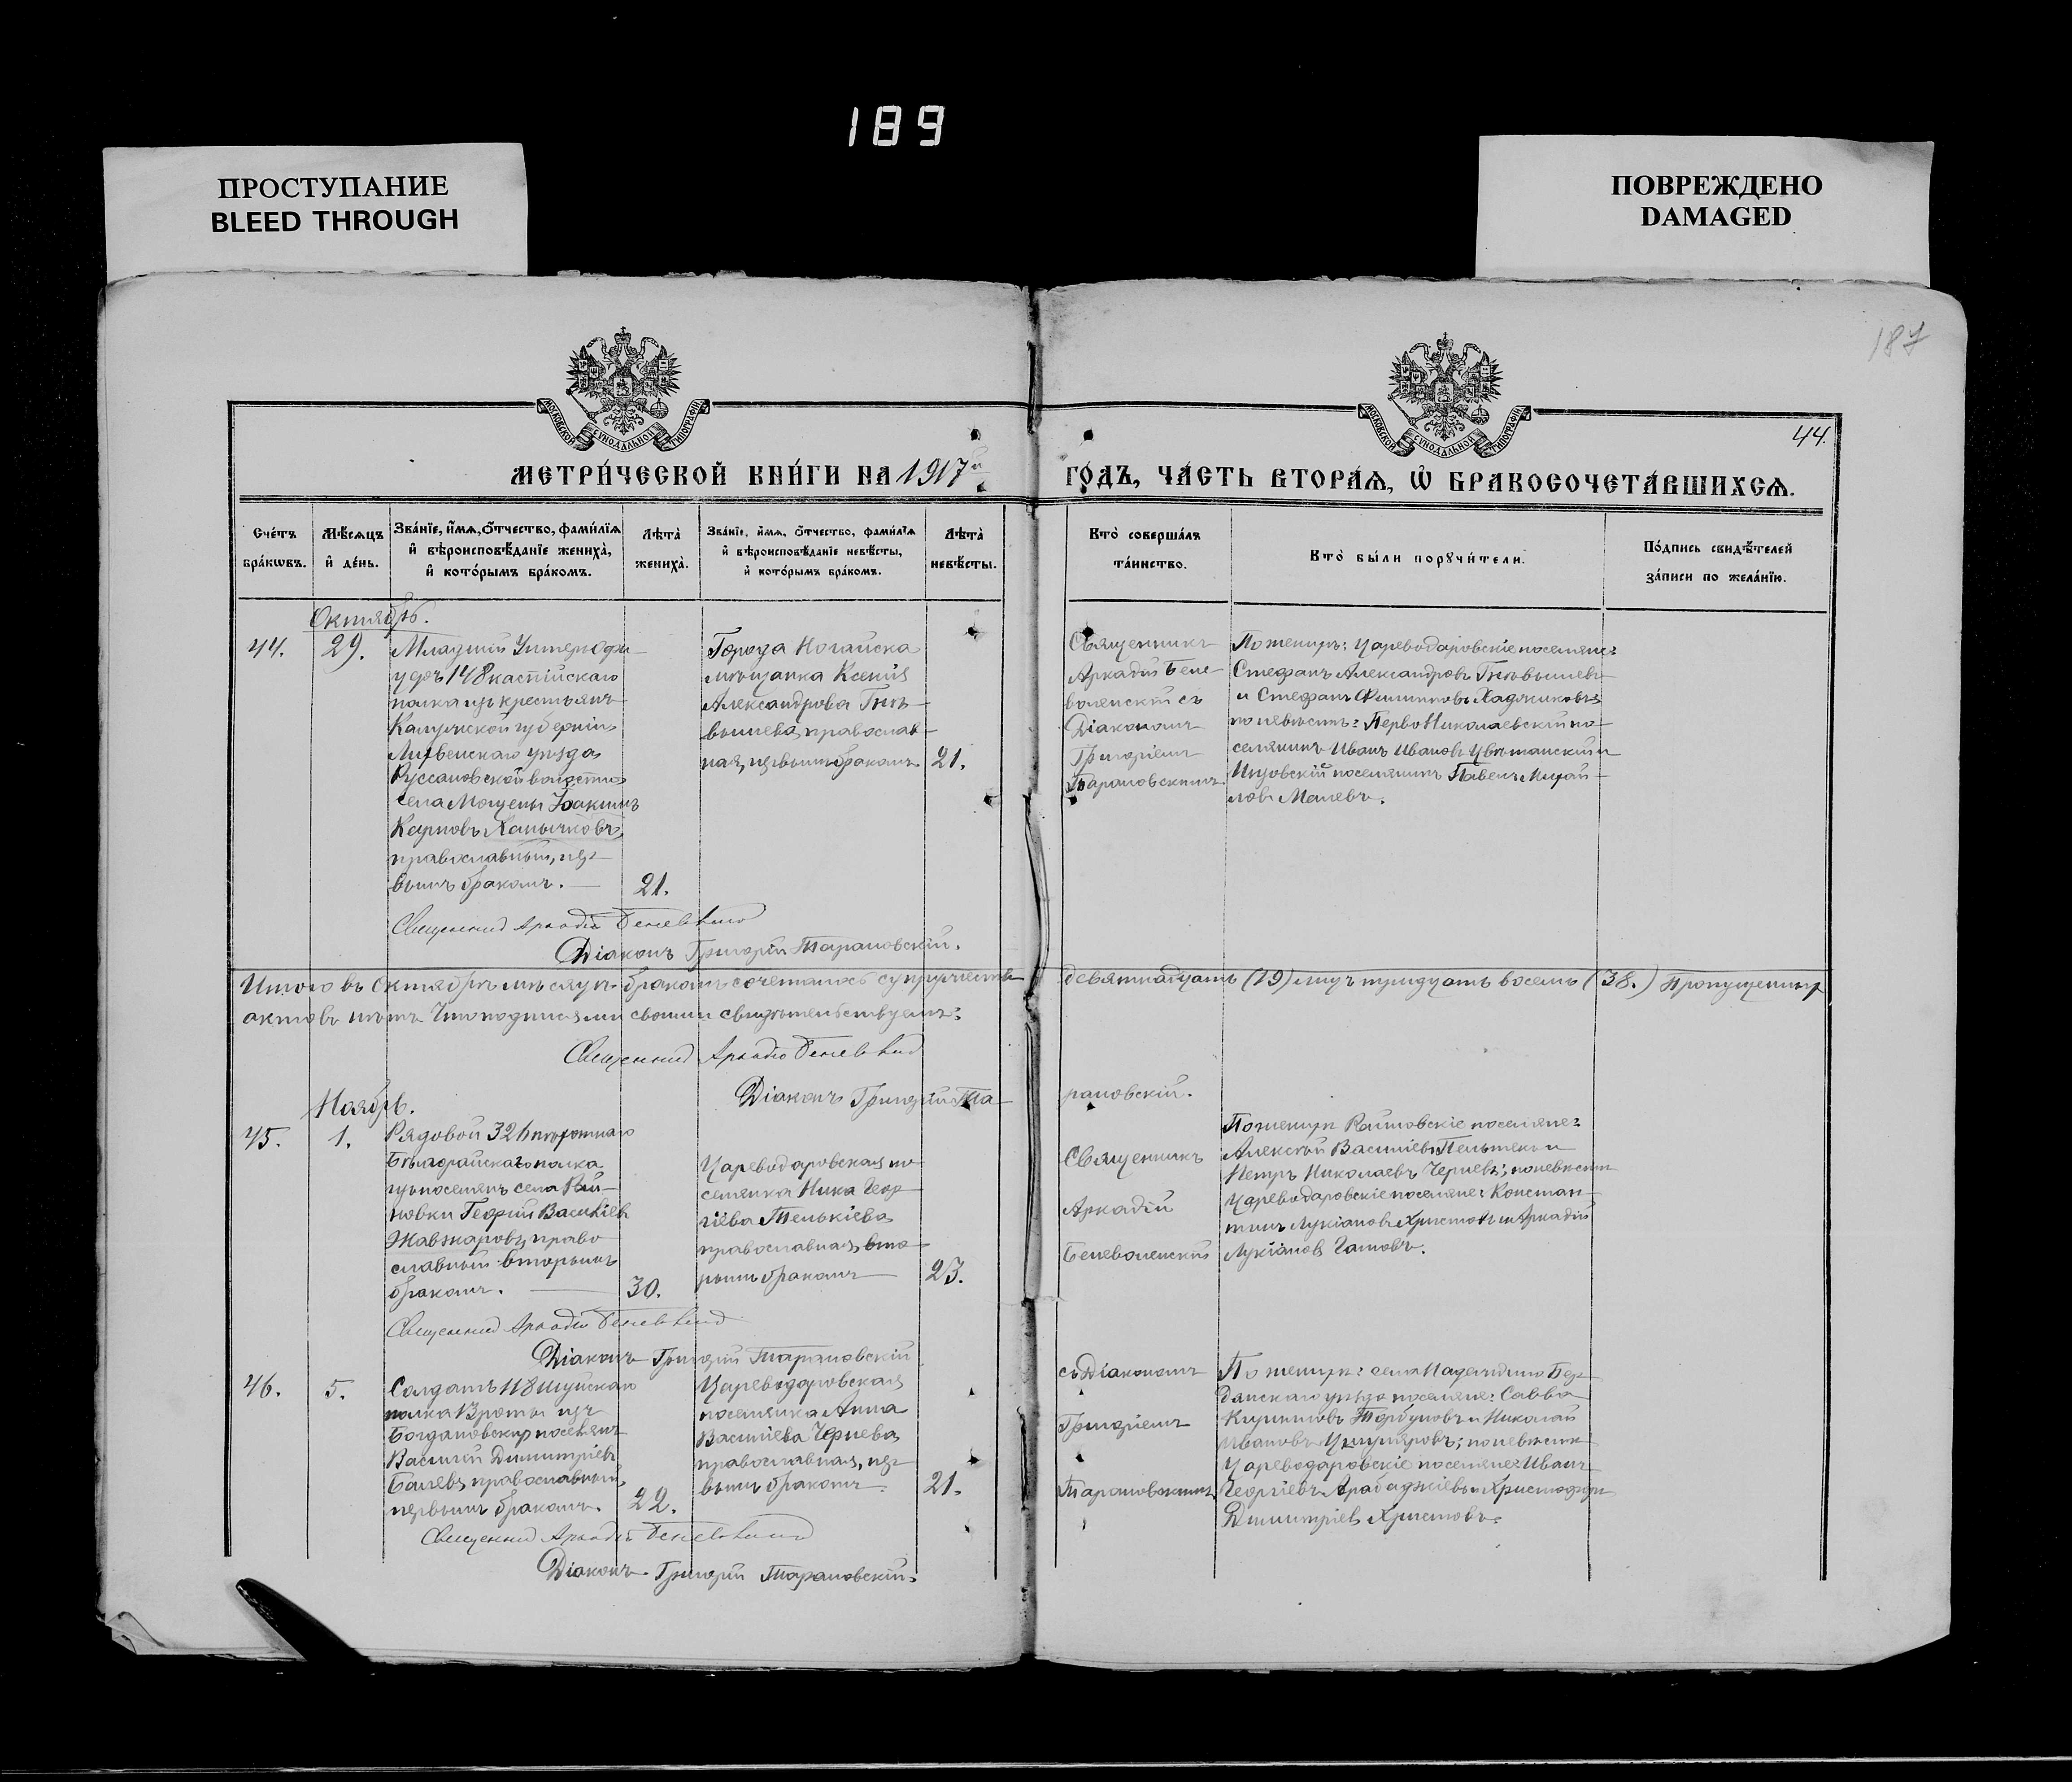 189
ПРОСТУПАНИЕ
BLEED THROUGH
ПОВРЕЖДЕНО
DAMAGED
187
МОСКОВСКОЙ СУНОДАЛЬНОЙ ТИПОГРАФІИ
МОСКОВСКОЙ СУНОДАЛЬНОЙ ТИПОГРАФІИ
44.
МЕТРИ́ЧЕСКОЙ КНИ́ГИ НА 1917й ГО́ДЪ, ЧА́СТЬ ВТОРА́Я, Ѡ БРАКОСОЧЕТА́ВШИХСЯ.
Сче́тъ бра́кѡвъ.
Мѣ́сяцъ и де́нь.
Зва́нїе, и́мя, о́тчество, фами́лїя
и вѣроисповѣ́данїе жениха̀,
и кото́рымъ бра́комъ.
Лѣта̀ жениха̀.
Зва́нїе, и́мя, о́тчество, фами́лїя
и вѣроисповѣ́данїе невѣ́сты,
и кото́рымъ бра́комъ.
Лѣта̀ невѣ́сты.
Кто̀ соверша́лъ
та́инство.
Кто̀ бы́ли порꙋчи́тели.
По́дпись свидѣ́телей
за́писи по жела́нїю.
Октябрь.
44.
29.
Младшій Унтеръ офи-
церъ 148 каспійскаго
полка изъ крестьянъ
Калужской губерніи
уѣзда
Руссановской волости
села Мощены Іоакимъ
Карповъ
православный, пер-
вымъ бракомъ.
21.
Города Ногайска
мѣщанка Ксенія
Александрова Гнѣ-
вышева, православ-
ная, первымъ бракомъ
21.
Священникъ
Аркадій Бене-
воленскій съ
Діакономъ
Григоріемъ
Тарановскимъ
По женихѣ: Цареводаровскіе поселяне:
Стефанъ Александровъ Гнѣвышевъ
и Стефанъ Филипповъ Хаджиновъ;
по невѣстѣ: Перво Николаевскій по-
селянинъ Иванъ Ивановъ и
Инзовскій поселянинъ Павелъ Михай-
ловъ Малевъ.
Священникъ Аркадій Беневоленскій
Діаконъ Григорій Тарановскій.
Итого въ Октябрѣ мѣсяцѣ бракомъ сочеталось супружествъ девятнадцать (19) лицъ тридцать восемь (38.) Пропущенныхъ
актовъ нѣтъ что подписями своими свидѣтельствуемъ:
Священникъ Аркадій Беневоленскій
Діаконъ Григорій Та-
рановскій.
Ноябрь.
45.
1.
Рядовой 32 6
полка
изъ поселянъ села Рай-
новки Георгій Васильевъ
Жавжаровъ, право
славный вторымъ
бракомъ.
30.
Цареводаровская по-
селянка Ника Геор-
гіева Тенькіева
православная, вто-
рымъ бракомъ
23.
Священникъ
Аркадій
Беневоленскій
По женихѣ Райновскіе поселяне:
Алексѣй Васильевъ и
Петръ Николаевъ Черневъ; по невѣстѣ
Цареводаровскіе поселяне: Констан-
тинъ Лукіановъ Христовъ и Аркадій
Лукіановъ Гатовъ.
Священникъ Аркадій Беневоленскій
Діаконъ Григорій Тарановскій
46.
5.
Солдатъ 118 шуйскаго
полка роты изъ
Богдановскихъ поселянъ
Василій Димитріевъ
Балевъ, православный,
первымъ бракомъ.
22.
Цареводаровская
поселянка Анна
Васильева Чернева
православная, пер-
вымъ бракомъ
21.
съ Діакономъ
Григоріемъ
Тарановскимъ
По женихѣ: села Надеждино Бер-
дянскаго уѣзда поселяне: Савва
Кирилловъ Торбуновъ и Николай
Ивановъ; по невѣстѣ
Цареводаровскіе поселяне: Иванъ
Георгіевъ Арабаджіевъ и
Димитріевъ Христовъ.
Священникъ Аркадій Беневоленскій
Діаконъ Григорій Тарановскій.